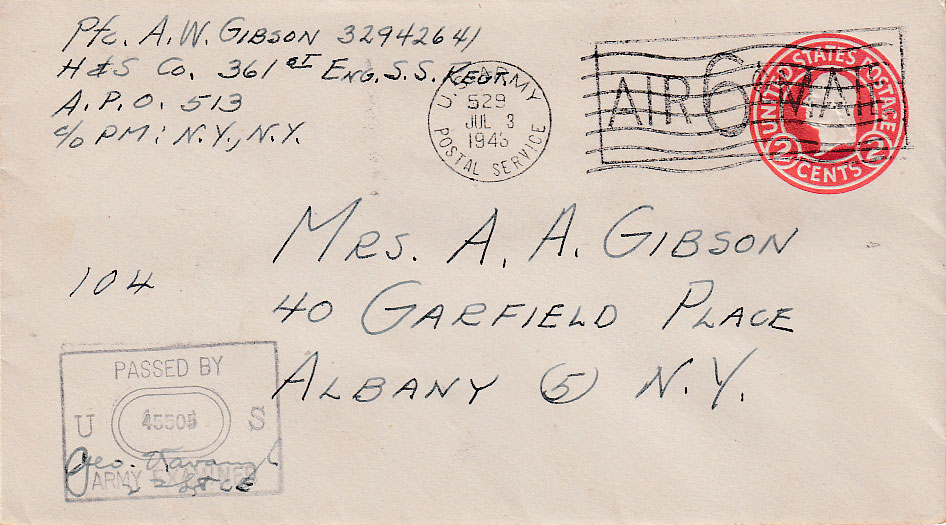 Pfc. A.W. GIBSON 32942641
H & S Co. 361 ST ENG. S.S. REGT.
A.P.O. 513
c/o PM: N.Y., N.Y.
U.S. ARMY
529
JUL 3
1945
POSTAL SERVICE
AIR 6¢ MAIL
UNITED STATES POSTAGE
2 CENTS 2
MRS. A. A. GIBSON
40 GARFIELD PLACE
ALBANY (5) N.Y.
104
PASSED BY
U 45505 S
Geo.
ARMY EXAMINER